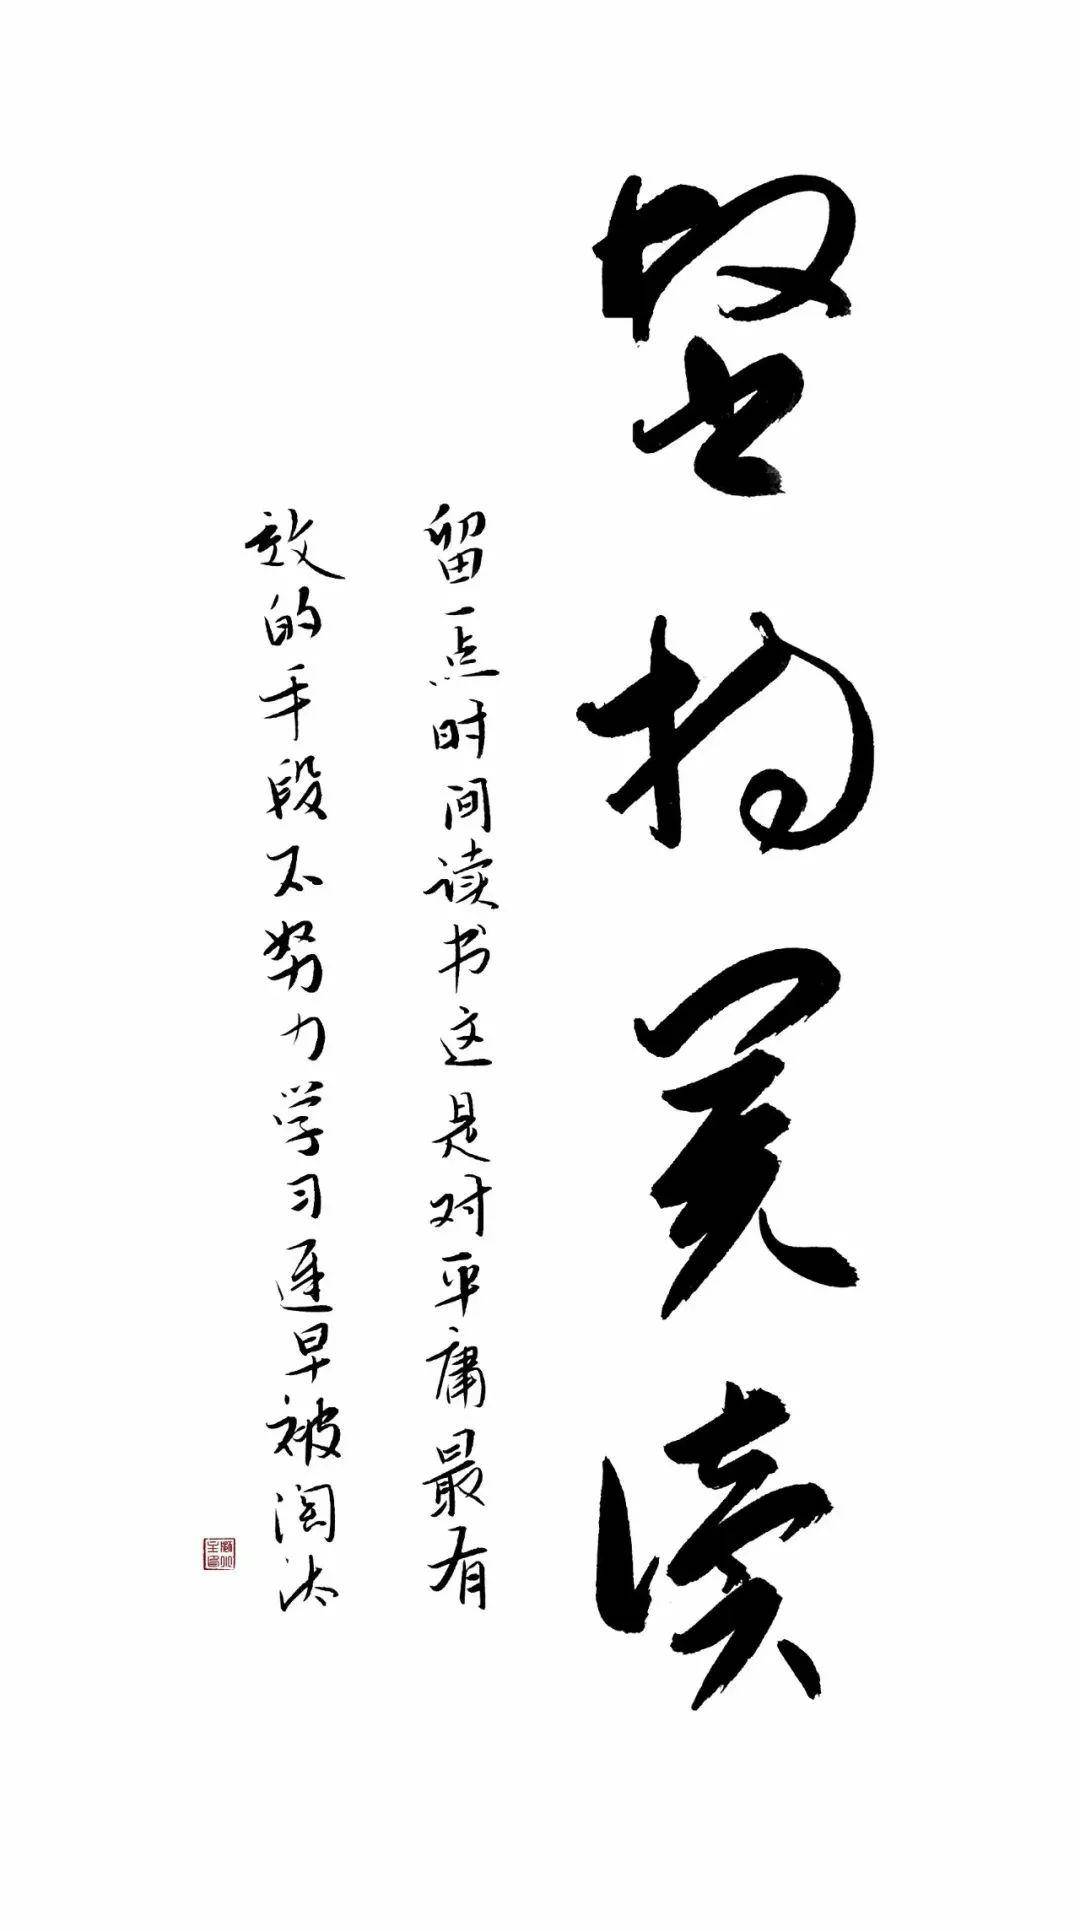 坚持阅读
留一点时间读书这是对平庸最有
效的手段不努力学习遲早被淘汰